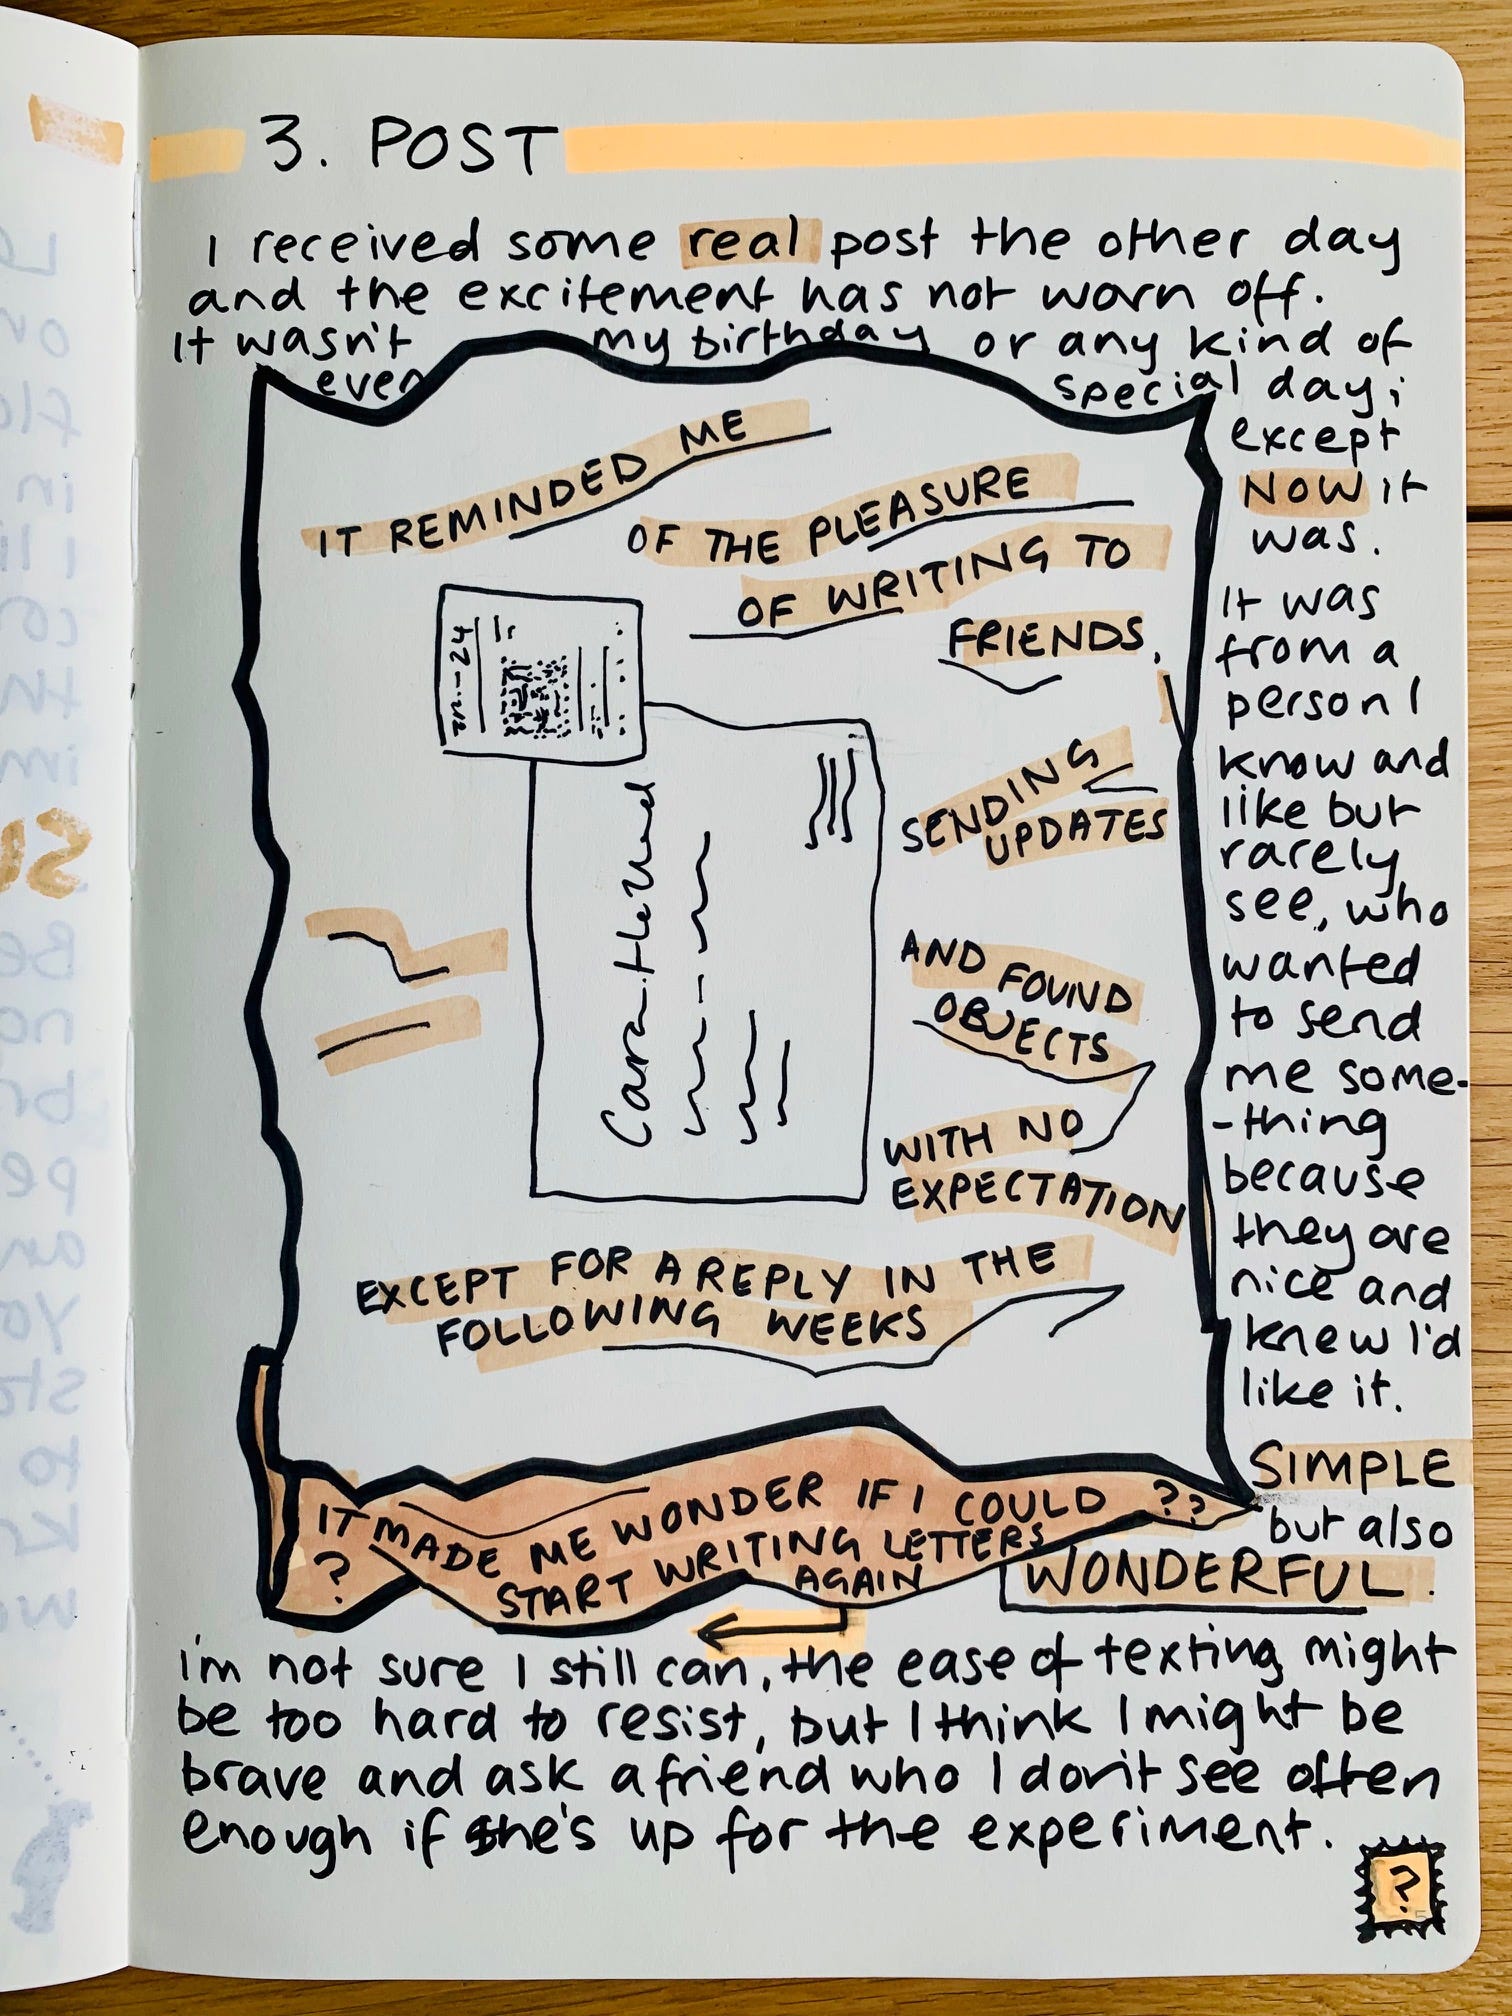 3. POST
I received some real post the other day
and the excitement has not worn off.
It wasn't my birthday or any kind of
even special day;
except
NOW it
was.
It was
from a
person I
know and
like but
rarely
see, who
wanted
to send
me some-
-thing
because
they are
nice and
knew I'd
like it.
SIMPLE
but also
WONDERFUL.
IT REMINDED ME
OF THE PLEASURE
OF WRITING TO
FRIENDS,
SENDING
UPDATES
AND FOUND
OBJECTS
WITH NO
EXPECTATION
EXCEPT FOR A REPLY IN THE
FOLLOWING WEEKS
IT MADE ME WONDER IF I COULD ??
? START WRITING LETTERS
AGAIN
i'm not sure I still can, the ease of texting might
be too hard to resist, but I think I might be
brave and ask a friend who I don't see often
enough if she's up for the experiment.
?
5